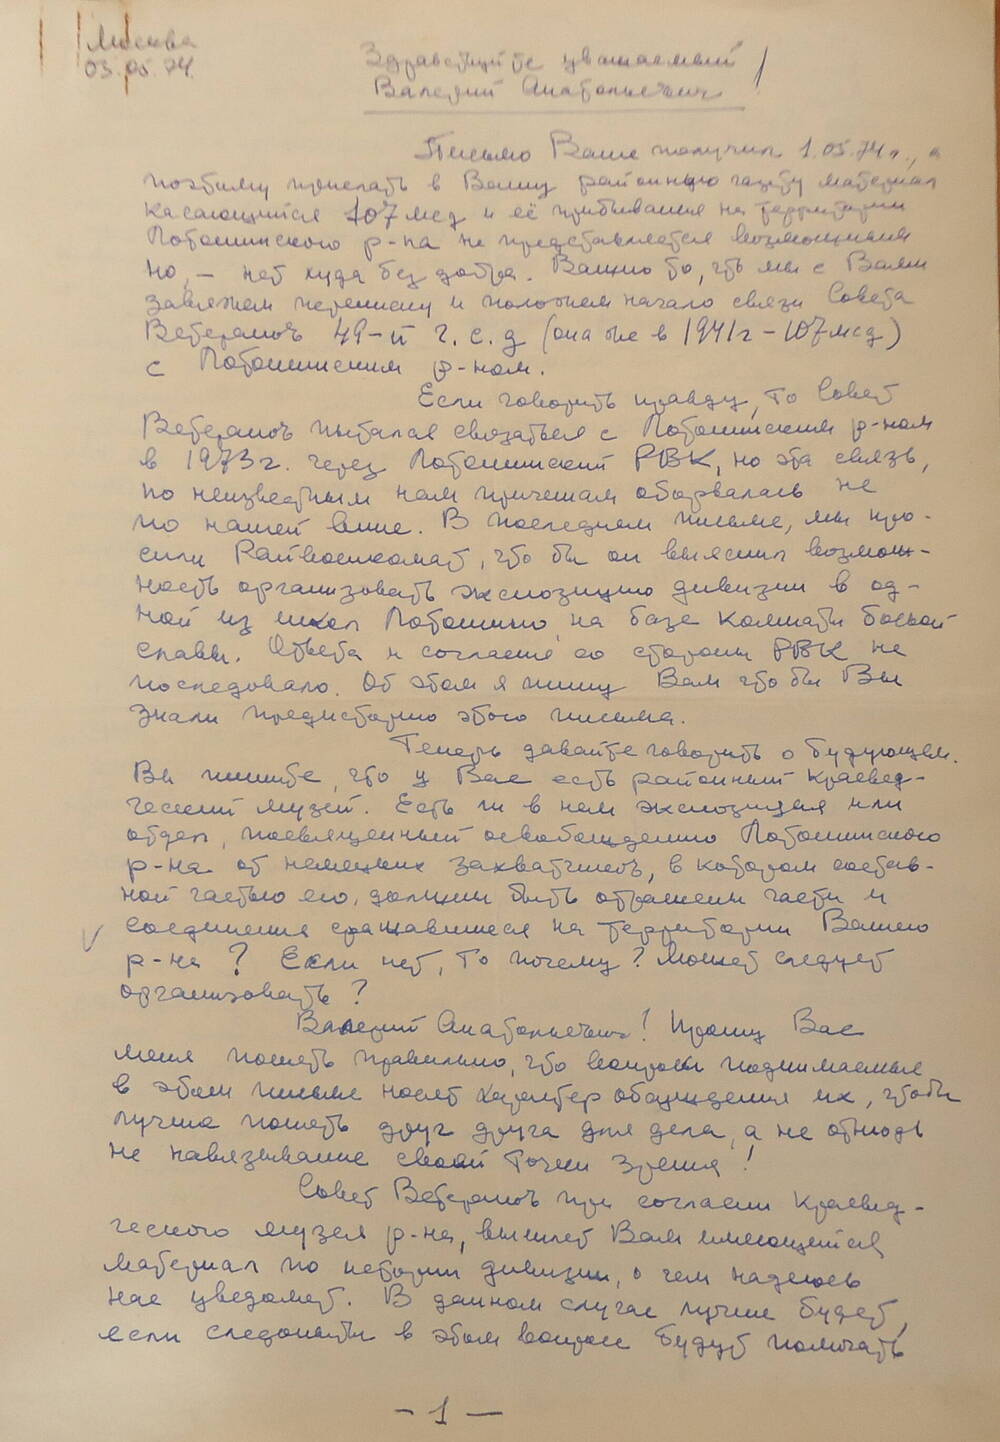 Москва
03.05.74.
Здравствуйте уважаемый
Валерий Анатольевич!
Письмо Ваше получил 1.05.74 г., и
поэтому прислать в Вашу районную газету материал
касающийся 107 мсд и её пребывания на территории
Лотошинского р-на не представляется возможным
но, — нет худа без добра. Важно то, что мы с Вами
завяжем переписку и положем начало связи Совета
Ветеранов 49-й г.с.д (она же в 1941г - 107 мсд)
с Лотошинским р-ном.
Если говорить правду, то Совет
Ветеранов пытался связаться с Лотошинским р-ном
в 1973г. через Лотошинский РВК, но эта связь,
по неизвестным нам причинам оборвалась не
по нашей вине. В последнем письме, мы про-
сили Райвоенкомат, что бы он выяснил возмож-
ность организовать экспозицию дивизии в од-
ной из школ Лотошино, на базе комнаты боевой
славы. Ответа и согласия со стороны РВК не
последовало. Об этом я пишу Вам что бы Вы
знали предисторию этого письма.
Теперь давайте говорить о будующем.
Вы пишите, что у Вас есть районный краевед-
ческий музей. Есть ли в нем экспозиция или
отдел, посвященный освобождению Лотошинского
р-на от немецких захватчиков, в котором состав-
ной частью его, должны быть отражены части и
соединения сражавшиеся на территории Вашего
р-на? Если нет, то почему? Может следует
организовать?
Валерий Анатольевич! Прошу Вас
меня понять правильно, что вопросы поднимаемые
в этом письме носят характер обсуждения их, чтобы
лучше понять друг друга для дела, а не отнюдь
не навязывание своей точки зрения!
Совет Ветеранов при согласии Краевед-
ческого музея р-на, вышлет Вам имеющийся
материал по истории дивизии, о чем надеюсь
нас уведомят. В данном случае лучше будет,
если следопыты в этом вопросе будут помогать
- 1 —